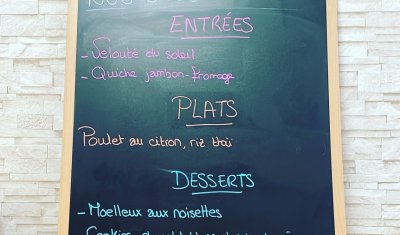 ENTRÉES
- Velouté du soleil
- Quiche jambon-fromage
PLATS
Poulet au citron, riz thaï
DESSERTS
- Moelleux aux noisettes